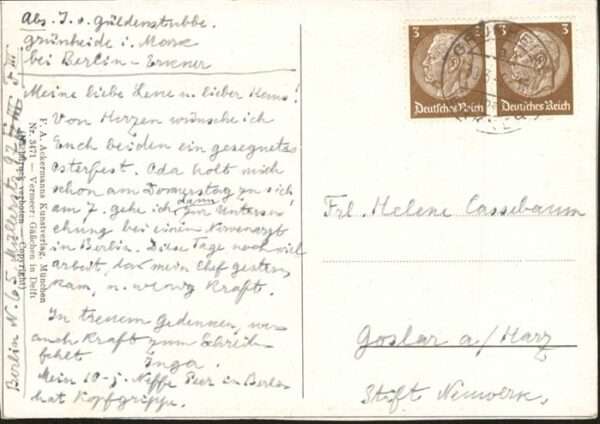 Abs. I. v. Güldenstubbe.
Grünheide i. Mark
bei Berlin-Erkner
Meine liebe Lene u. lieber Hans!
Von Herzen wünsche ich
Euch beiden ein gesegnetes
Osterfest. Oda holt mich
schon am Donnerstag zu sich,
am 7. gehe ich dann zur Untersu-
chung bei einem Nervenarzt
in Berlin. Diese Tage noch viel
arbeit, da mein Chef gestern
kam, u. wenig Kraft.
In treuem Gedenken, wo
auch Kraft zum Schreib-
fehlt Inga.
Mein 10-j. Neffe Peer in Berlin
hat Kopfgrippe.
Berlin N. 65 Müllerstr. 97
F. A. Ackermanns Kunstverlag, München
Nr. 3471 – Vermeer: Gäßchen in Delft
3
Deutsches Reich
3
Deutsches Reich
Frl. Helene Cassebaum
Goslar a/Harz
Stift Neuwerk.